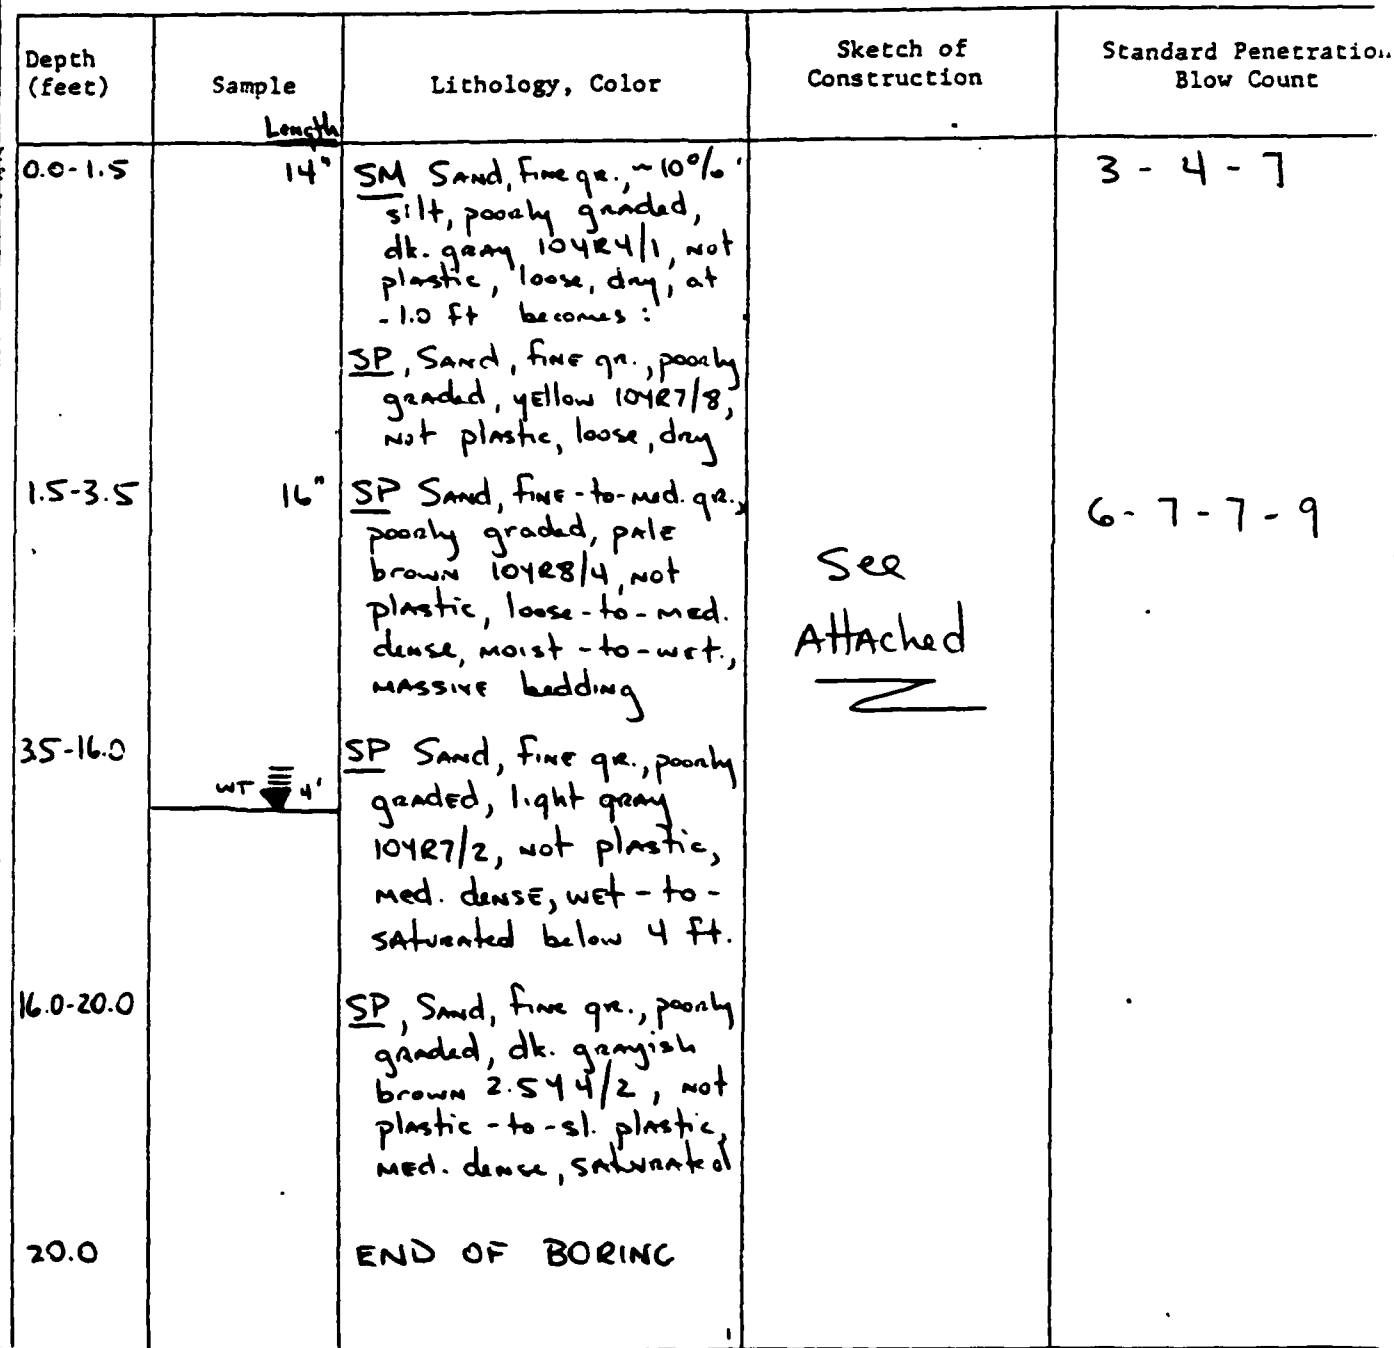 Depth
(feet)
Sample
Length
Lithology, Color
Sketch of
Construction
Standard Penetration
Blow Count
0.0-1.5
14"
SM Sand, fine gr., ~10%
silt, poorly graded,
dk. gray 10YR4/1, not
plastic, loose, dry, at
-1.0 ft becomes:
SP, Sand, fine gr., poorly
graded, yellow 10YR7/8,
Not plastic, loose, dry
3 - 4 - 7
1.5-3.5
16"
SP Sand, fine-to-med. gr.,
poorly graded, pale
brown 10YR8/4, not
plastic, loose-to-med.
dense, moist-to-wet.,
massive bedding
See
Attached
6 - 7 - 7 - 9
3.5-16.0
WT 4'
SP Sand, fine gr., poorly
graded, light gray
10YR7/2, not plastic,
med. dense, wet-to-
saturated below 4 ft.
16.0-20.0
SP, Sand, fine gr., poorly
graded, dk. grayish
brown 2.5Y4/2, not
plastic-to-sl. plastic,
med. dense, saturated
20.0
END OF BORING